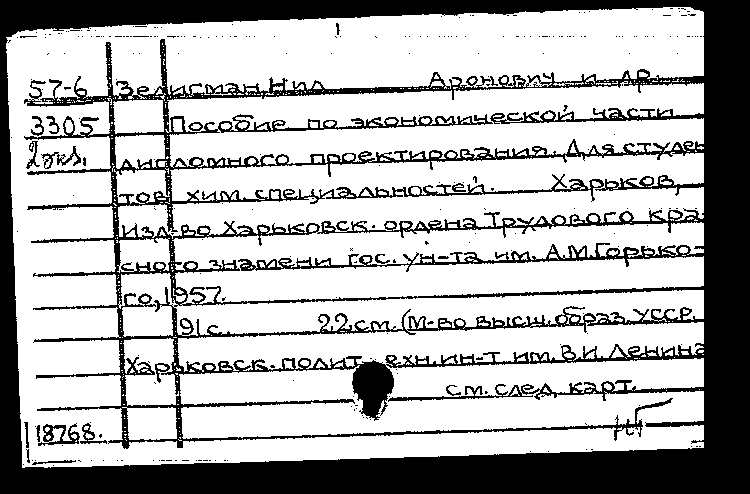 57-6 Зелигман, Нил Аронович и др.
3305 Пособие по экономической части
2 экз. дипломного проектирования. Для студен
тов хим. специальностей. Харьков,
Изд-во Харьковск. ордена Трудового кра-
сного знамени гос. ун-та им. А.М.Горько-
го, 1957.
91 с. 22 см. (М-во высш. образ. УССР.
Харьковск. полит ехн. ин-т им. В.И. Ленина
см. след. карт.
18768.